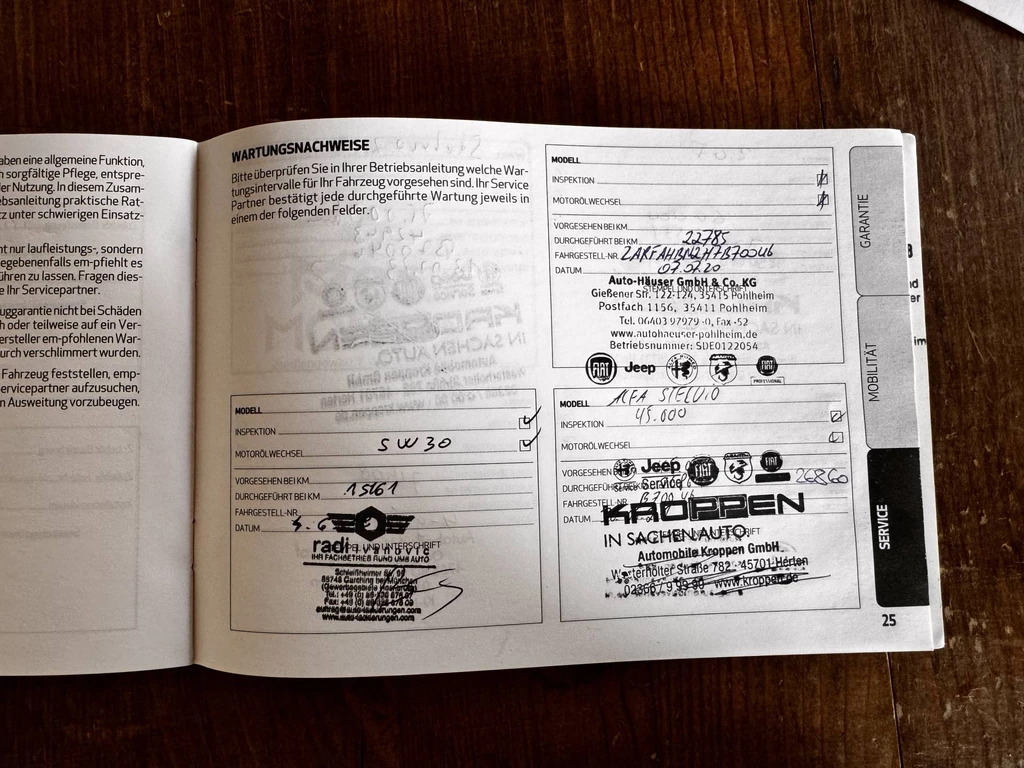 aben eine allgemeine Funktion,
sorgfältige Pflege, entspre-
der Nutzung. In diesem Zusam-
ebsanleitung praktische Rat-
tz unter schwierigen Einsatz-
nt nur laufleistungs-, sondern
gegebenenfalls em-pfiehlt es
ühren zu lassen. Fragen dies-
e Ihr Servicepartner.
uggarantie nicht bei Schäden
ch oder teilweise auf ein Ver-
ersteller em-pfohlenen War-
urch verschlimmert wurden.
Fahrzeug feststellen, emp-
ervicepartner aufzusuchen,
n Ausweitung vorzubeugen.
WARTUNGSNACHWEISE
Bitte überprüfen Sie in Ihrer Betriebsanleitung welche War-
tungsintervalle für Ihr Fahrzeug vorgesehen sind. Ihr Service
Partner bestätigt jede durchgeführte Wartung jeweils in
einem der folgenden Felder.
MODELL
INSPEKTION
MOTORÖLWECHSEL
VORGESEHEN BEI KM
DURCHGEFÜHRT BEI KM 22785
FAHRGESTELL-NR.
DATUM 07.07.20
STEMPEL UND UNTERSCHRIFT
Auto-Häuser GmbH & Co. KG
Gießener Str. 122-124, 35415 Pohlheim
Postfach 1156, 35411 Pohlheim
Tel. 06403 97979-0, Fax -52
www.autohaeuser-pohlheim.de
Betriebsnummer: SDE0122054
FIAT Jeep FIAT PROFESSIONAL
MODELL
INSPEKTION
MOTORÖLWECHSEL 5W30
VORGESEHEN BEI KM
DURCHGEFÜHRT BEI KM 15161
FAHRGESTELL-NR.
DATUM
UND UNTERSCHRIFT
IHR FACHBETRIEB RUND UMS AUTO
Schleißheimer
85748 Garching bei München
MODELL ALFA STELVIO
INSPEKTION 45.000
MOTORÖLWECHSEL
VORGESEHEN
DURCHGEFÜHRT 26860
FAHRGESTELL-NR.
DATUM
Jeep FIAT
Service
KROPPEN
IN SACHEN AUTO
Automobile Kroppen GmbH
Westerholter Straße 782 · 45701 Herten
02366 / 9 99 80 www.kroppen.de
GARANTIE
MOBILITÄT
SERVICE
25